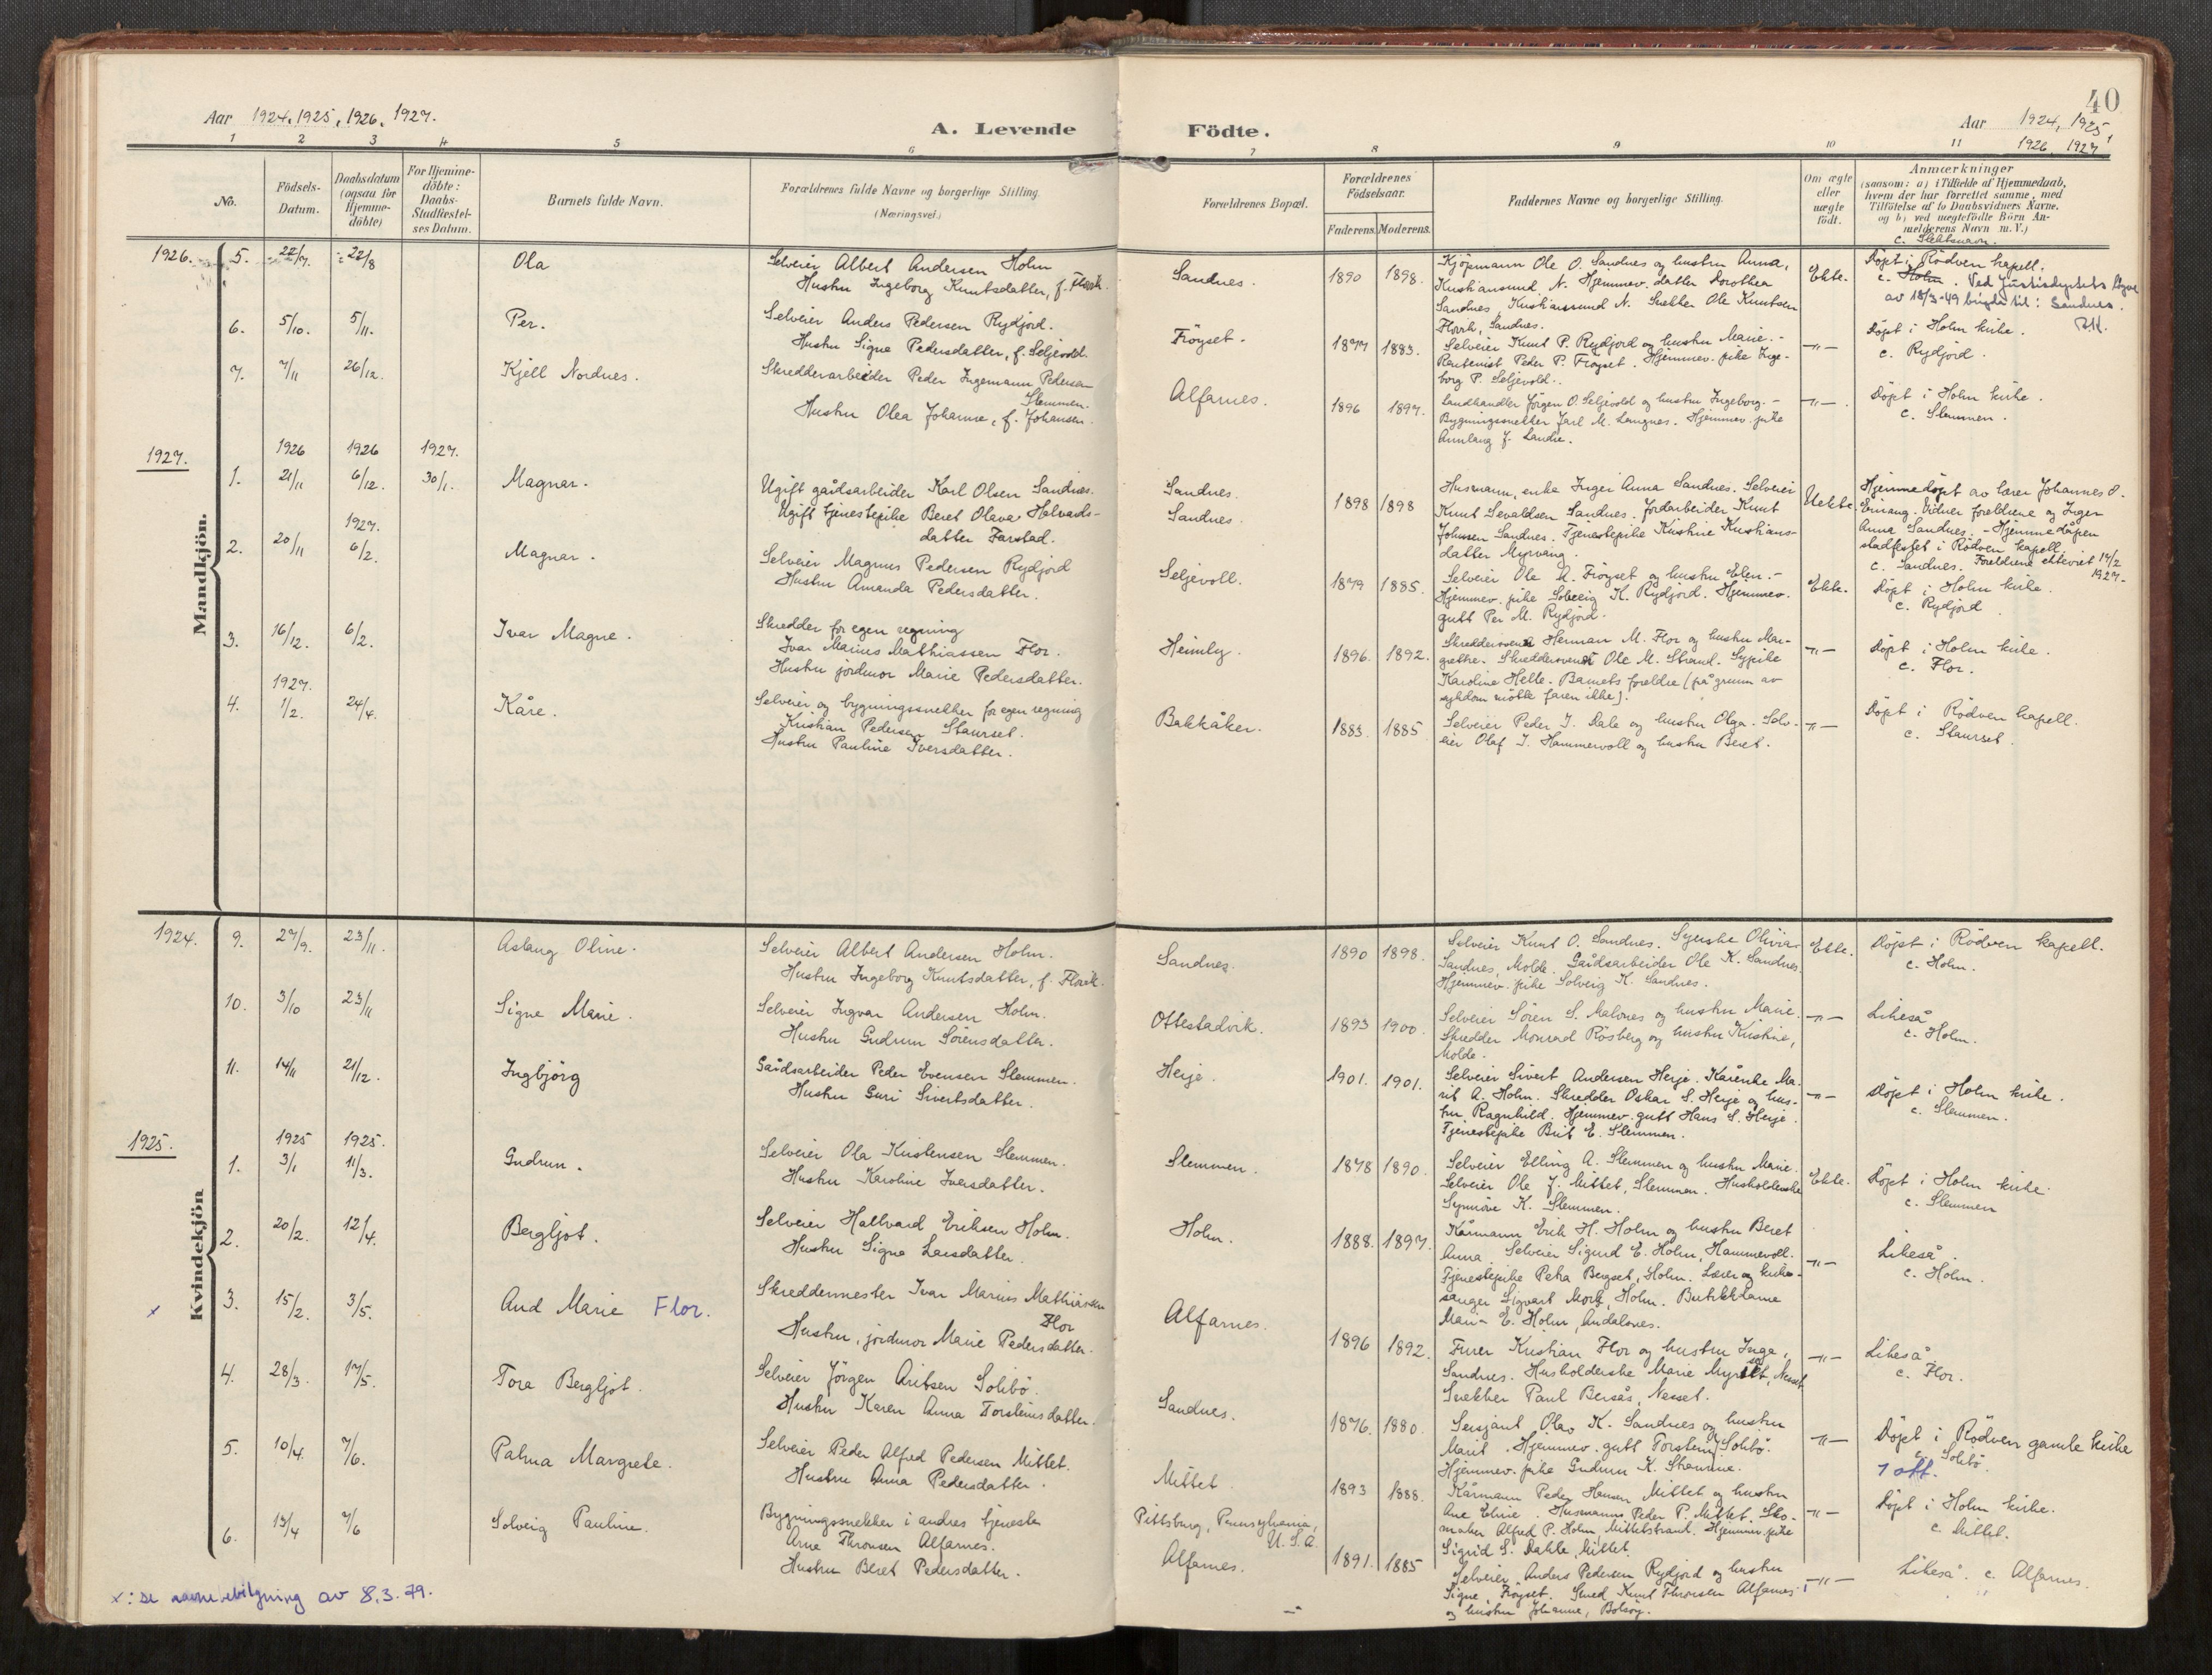 40
Aar 1924, 1925, 1926, 1927.
A. Levende Födte.
Aar 1924, 1925,
1926, 1927
1 2 3 4 5 6 7 8 9 10 11
No.
Födsels-
Datum.
Daabsdatum
(ogsaa for
Hjemme-
döbte)
For Hjemme-
döbte:
Daabs-
Stadfæstel-
ses Datum.
Barnets fulde Navn.
Forældrenes fulde Navne og borgerlige Stilling.
(Næringsvei.)
Forældrenes Bopæl.
Forældrenes
Födselsaar.
Faderens. Moderens.
Faddernes Navne og borgerlige Stilling.
Om ægte
eller
uægte
födt.
Anmærkninger
(saasom: a) i Tilfælde af Hjemmedaab,
hvem der har forrettet samme, med
Tilföielse af to Daabsvidners Navne,
og b) ved uægtefödte Börn An-
melderens Navn m. V.)
c. Slektsnavn.
Mandkjön.
1926.
5. 22/7. 22/8 Ola
Selveier Albert Andersen Holm
Hustru Ingeborg Knutsdatter, f. Flovik.
Sandnes. 1890 1898.
Kjöpmann Ole O. Sandnes og hustru Anna,
Kristiansund N. Hjemmev. datter Dorothea
Sandnes, Kristiansund N. Snekker Ole Knutsen
Flovik, Sandnes.
Ekte.
Döpt i Rödven kapell.
c. Holm. Ved Justisdeptets
av 18/3-49 til: Sandnes.
6. 5/10. 5/11. Per.
Selveier Anders Pedersen Rydjord.
Hustru Signe Pedersdatter, f. Seljevold.
Fröyset. 1877 1883.
Selveier Knut P. Rydjord og hustru Marie. -
Rantenist Peder P. Fröyset. Hjemmev. pike Inge-
borg P. Seljevold.
-"-
Döpt i Holm kirke.
c. Rydjord.
7. 7/11 26/12. Kjell Nordnes.
Skredderarbeider Peder Ingemann Pedersen
Slemmen.
Hustru Olea Johanne, f. Johansen.
Alfarnes. 1896 1897.
Landhandler Jörgen O. Seljevold og hustru Ingeborg. -
Bygningssnekker Jarl M. Langnes. Hjemmev. pike
Annlaug J. Sandre.
-"-
Döpt i Holm kirke.
c. Slemmen.
1927.
1926 1926 1927.
1. 21/11 6/12. 30/1. Magnar.
Ugift gårdsarbeider Karl Olsen Sandnes.
Ugift tjenestepike Beret Olava Halvards-
datter Farstad.
Sandnes.
Sandnes.
1898 1898
Husmann, enke Inger Anna Sandnes. Selveier
Knut Sevaldsen Sandnes. Jordarbeider Knut
Johnsen Sandnes. Tjenestepike Kristine Kristians-
datter Myrvang.
Uekte.
Hjemmedöpt av lærer Johannes O.
Einang. Vidner foreldrene og Inger
Anna Sandnes. - Hjemmedåpen
stadfestet i Rödven kapell.
c. Sandnes. Foreldrene ekteviet 14/2
1927.
1927.
2. 20/11 6/2. Magnar.
Selveier Magnus Pedersen Rydjord
Hustru Amanda Pedersdatter.
Seljevoll. 1879 1885.
Selveier Ole A. Fröyset og hustru Elen. -
Hjemmev. pike Solveig K. Rydjord. Hjemmev.
gutt Per M. Rydjord.
Ekte.
Döpt i Holm kirke.
c. Rydjord
3. 16/12. 6/2. Ivar Magne.
Skredder for egen regning
Ivar Marius Mathiassen Flor.
Hustru jordmor Marie Pedersdatter.
Heimly. 1896. 1892.
Skreddersvend Herman M. Flor og hustru Mar-
grethe. Skreddersvend Ole M. Strand. Sypike
Karoline Helle. Barnets foreldre (på grunn av
sykdom mötte faren ikke).
-"-
Döpt i Holm kirke.
c. Flor.
1927.
4. 1/2. 24/4. Kåre.
Selveier og bygningssnekker for egen regning
Kristian Pedersen Staurset.
Hustru Pauline Iversdatter.
Bakkåker. 1883. 1885.
Selveier Peder I. Dale og hustru Olga. Selv-
eier Olaf I. Hammervoll og hustru Beret.
-"-
Döpt i Rödven kapell.
c. Staurset.
Kvindekjön
1924.
9. 27/9. 23/11. Aslaug Oline.
Selveier Albert Andersen Holm.
Hustru Ingeborg Knutsdatter, f. Flovik.
Sandnes. 1890 1898.
Selveier Knut O. Sandnes. Syerske Olivia
Sandnes, Molde. Gårdsarbeider Ole K. Sandnes.
Hjemmev. pike Solveig K. Sandnes.
Ekte.
Döpt i Rödven kapell.
c. Holm.
10. 3/10 23/11 Signe Marie.
Selveier Ingvar Andersen Holm.
Hustru Gudrun Sörensdatter.
Ottestadvik. 1893 1900.
Selveier Sören S. Malones og hustru Marie.
Skredder Monrad Rösberg og hustru Kristine,
Molde.
-"-
Likeså
c. Holm.
11. 14/11 21/12. Ingbjörg
Gårdsarbeider Peder Evensen Slemmen.
Hustru Guri Sivertsdatter.
Herje. 1901. 1901.
Selveier Sivert Andersen Herje. Kårenke Ma-
rit A. Holm. Skredder Oskar S. Herje og hus-
tru Ragnhild. Hjemmev. gutt Hans S. Herje.
Tjenestepike Brit E. Slemmen.
-"-
Döpt i Holm kirke.
c. Slemmen.
1925.
1925 1925.
1. 3/1 11/3. Gudrun.
Selveier Ola Kristensen Slemmen.
Hustru Karoline Iversdatter.
Slemmen. 1878 1890.
Selveier Elling A. Slemmen og hustru Marie.
Selveier Ole J. Mittet, Slemmen. Husholderske
Synnöve K. Slemmen.
Ekte.
Döpt i Holm kirke.
c. Slemmen
2. 20/2. 12/4. Bergljot.
Selveier Hallvard Eriksen Holm.
Hustru Signe Larsdatter.
Holm. 1888. 1897.
Kårmann Erik H. Holm og hustru Beret
Anna. Selveier Sigurd E. Holm, Hammervoll.
Tjenestepike Petra Bergset, Holm. Lærer og kirke-
sanger Sigvart Mork, Holm. Butikkdame
Mari E. Holm, Åndalsnes.
-"-
Likeså.
c. Holm.
x 3. 15/2. 3/5. Aud Marie Flor.
Skreddermester Ivar Marius Mathiassen
Flor
Hustru, jordmor Marie Pedersdatter.
Alfarnes. 1896 1892.
Furer Kristian Flor og hustru Inga,
Sandnes. Husholderske Marie Myrset, Nesset
Snekker Paul Bersås, Nesset.
-"-
Likeså
c. Flor.
4. 28/3. 17/5. Tora Bergljot.
Selveier Jörgen Aritsen Solibö.
Hustru Karen Anna Torsteinsdatter.
Sandnes. 1876. 1880.
Sersjant Olav K. Sandnes og hustru
Marit. Hjemmev. gutt Torstein J. Solibö.
Hjemmev. pike Gudrun K. Stramme.
-"-
Döpt i Rödven gamle kirke
c. Solibö.
1 att.
5. 10/4. 7/6. Palma Margrete.
Selveier Peder Alfred Pedersen Mittet.
Hustru Anna Pedersdatter.
Mittet. 1893 1888.
Kårmann Peder Hansen Mittet og hustru
Ane Eline. Husmann Peder P. Mittet. Sko-
maker Alfred P. Holm, Mittetstrand. Hjemmev. pike
Sigrid S. Dahle, Mittet.
-"-
Döpt i Holm kirke.
c. Mittet.
6. 13/4 7/6 Solveig Pauline.
Bygningssnekker i andres tjeneste
Arne Thronsen Alfarnes.
Hustru Beret Pedersdatter.
Pittsburg, Pennsylvania,
U. S. A.
Alfarnes.
1891. 1885
Selveier Anders Pedersen Rydjord og hustru
Signe, Fröyset. Smed Knut Thronsen Alfarnes
og hustru Johanne, Bolsöy.
-"-
Likeså. c. Alfarnes.
x: se navnebevilgning av 8.3.79.